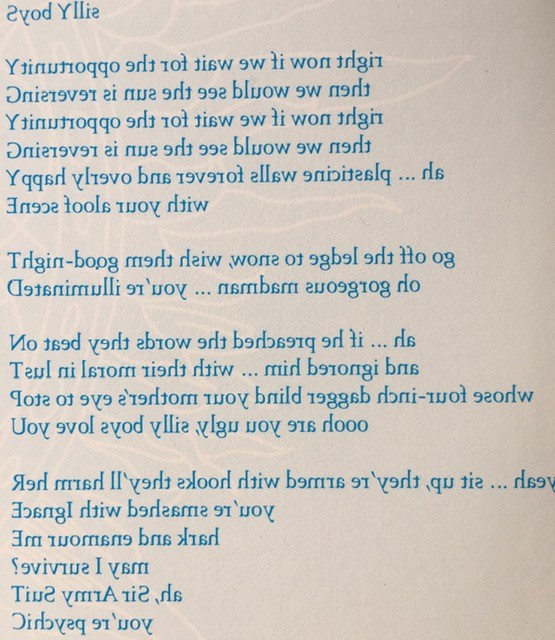 sillY boyS
right now if we wait for the opportunitY
then we would see the sun is reversinG
right now if we wait for the opportunitY
then we would see the sun is reversinG
ah ... plasticine walls forever and overly happY
with your aloof scenE
go off the ledge to snow, wish them good-nighT
oh gorgeous madman ... you're illuminateD
ah ... if he preached the words they beat oN
and ignored him ... with their moral in lusT
whose four-inch dagger blind your mother's eye to stoP
oooh are you ugly, silly boys love yoU
yeah ... sit up, they're armed with hooks they'll harm heR
you're smashed with IgnacE
hark and enamour mE
may I survive?
ah, Sir Army SuiT
you're psychiC